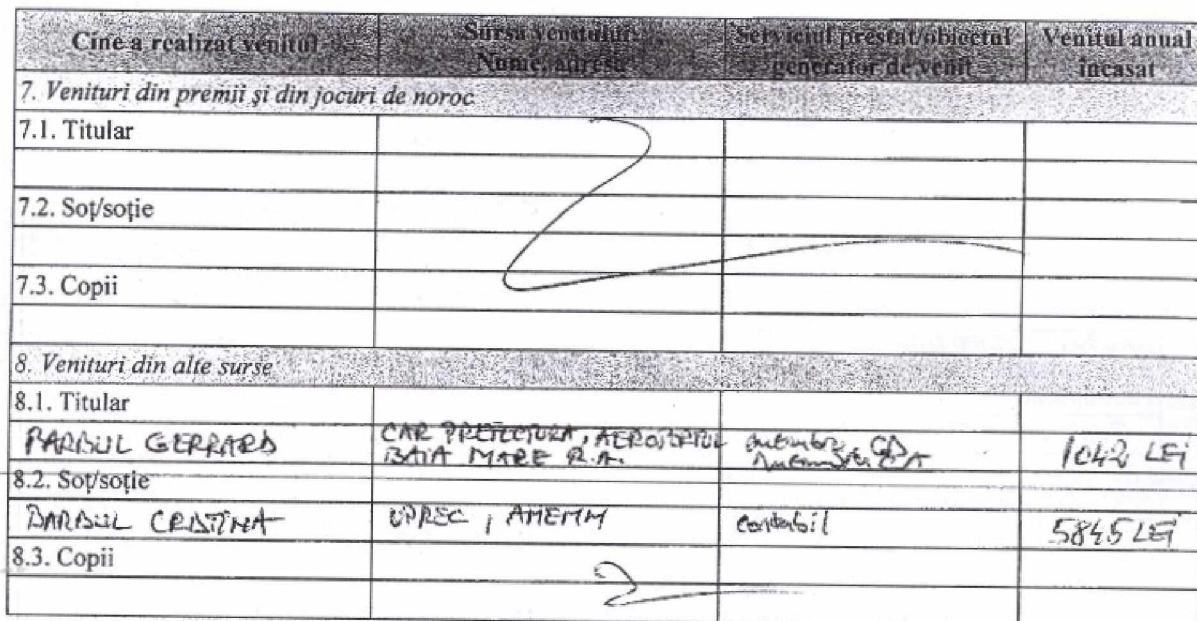 Cine a realizat venitul
Sursa venitului:
Nume, adresa
Serviciul prestat/obiectul
generator de venit
Venitul anual
încasat
7. Venituri din premii și din jocuri de noroc
7.1. Titular
7.2. Soț/soție
7.3. Copii
8. Venituri din alte surse
8.1. Titular
BARBUL GERRARD
CAR PREFECTURA, AEROPORTUL
BAIA MARE R.A.
membru CD
membru CA
1042 LEI
8.2. Soț/soție
BARBUL CRISTINA
UPREC, AMEMM
contabil
5845 LEI
8.3. Copii